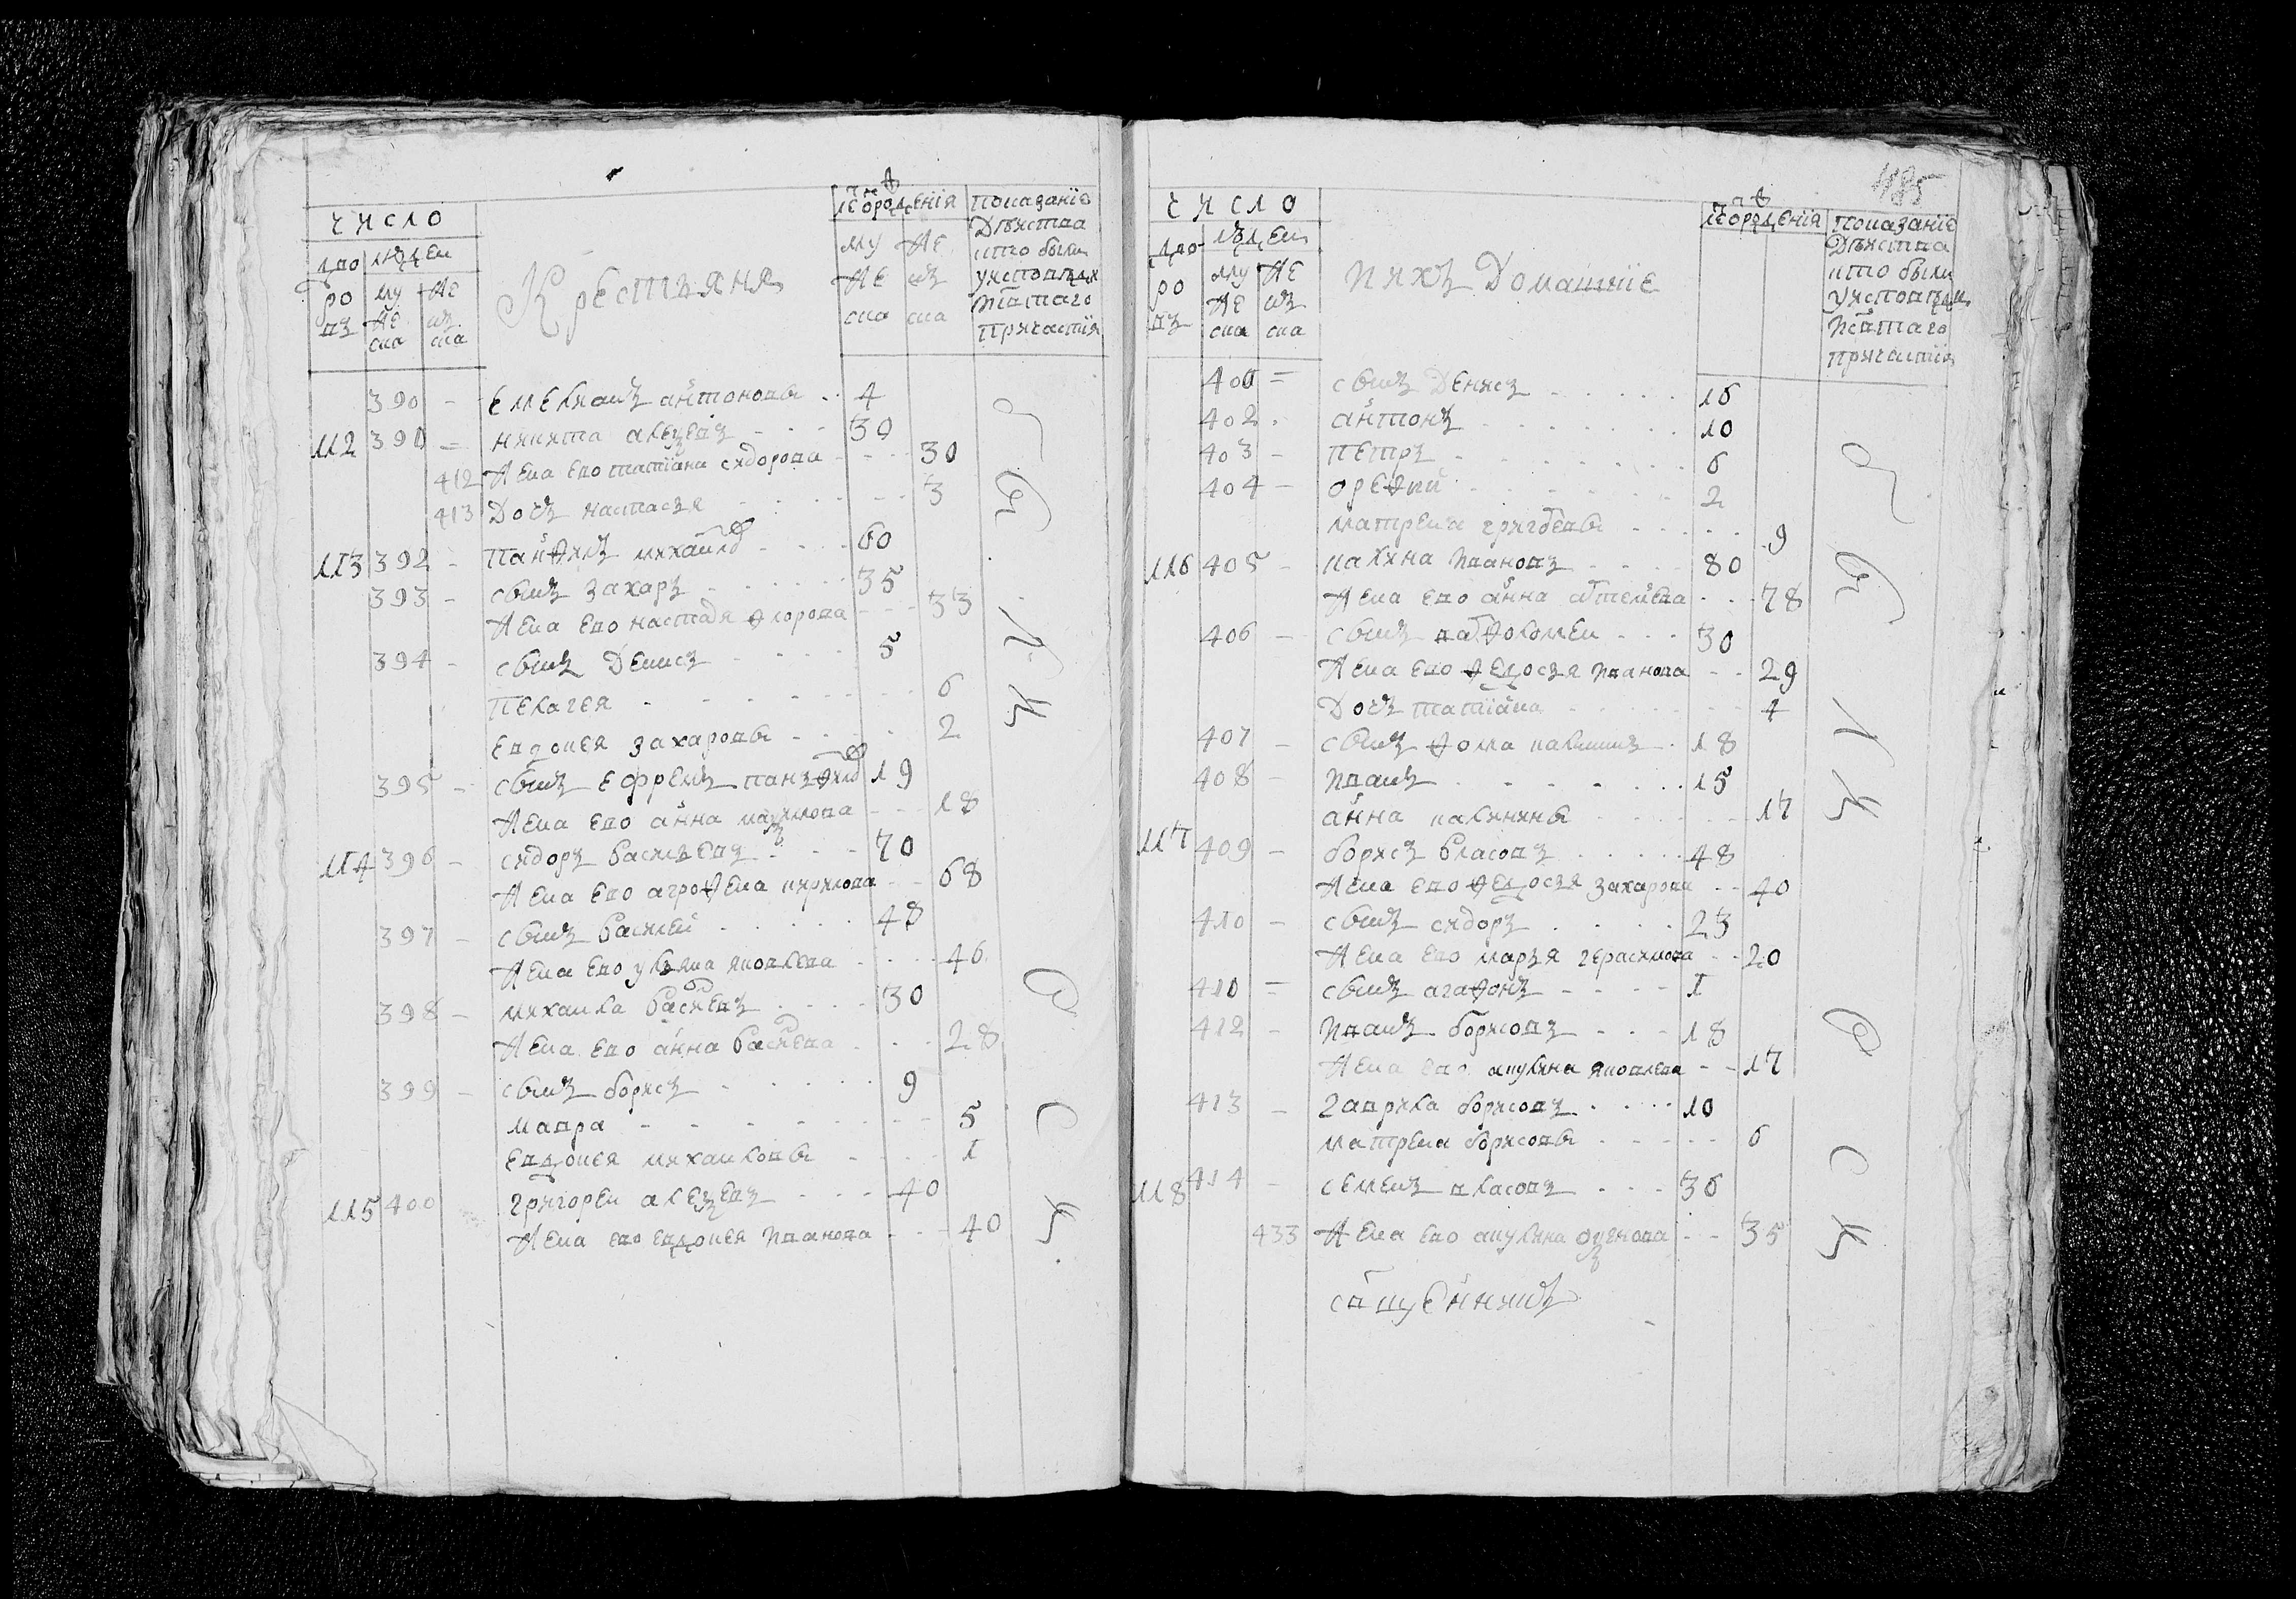 число
дворовъ
людеи
мужеска
женска
Крестьяня
лѣ от рожденїя
мужеска
женска
показанїе
Дѣиства
кто были
у исповѣди и
с̃таго
причастїя
390 - емельянъ антоновы . . 4
112 391 = никита алеѯеевъ - - - 30
412 жена ево татїана сидорова - - - 30
413 дочь настасья - - - 3
113 392 - панѳилъ михаилов - - - 60
393 - сынъ захаръ - - - 35
жена ево настася ѳлорова - - - 33
394 - сынъ денисъ - - - 5
пелагея - - - 6
евдокея захаровы - - - 2
395 - сынъ ефремъ панъѳилов 19
жена ево анна - - - 18
114 396 - сидоръ васильевъ - - - 70
жена ево агроѳена кирилова - - 68
397 - сынъ василеи - - - 48
жена ево ульяна яковлева - - - 46
398 - михаила василевъ - - - 30
жена ево анна василева - - - 28
399 - сынъ борисъ - - - 9
мавра - - - 5
евдокея михаиловы - - - 1
115 400 григореи алеѯеевъ - - - 40
жена ево евдокея иванова - - - 40
бы
ли
въ
с
ъ
1185
число
дворовъ
людеи
мужеска
женска
ихъ Домашнїе
лѣ от рожденїя
показанїе
Дѣиства
кто были
у исповѣди
с̃таго
причастїя
401 = сынъ денисъ - - - 16
402 . антонъ - - - 10
403 - петръ - - - 6
404 - ореѳии - - - 2
матрена григоревы - - - 9
116 405 - калина ивановъ - - - 80
жена ево анна артемева - - - 78
406 - сынъ варѳоломеи - - - 30
жена ево ѳедосья иванова - - 29
дочь татїана - - - 4
407 - сынъ ѳома калининъ . 18
408 - иванъ - - - 15
анна калинины - - - 17
117 409 - борисъ власовъ - - - 48
жена ево ѳедосья захарова - - 40
410 - сынъ сидоръ - - - 23
жена ево марья герасимова - - 20
411 = сынъ агаѳонъ - - - 1
412 - иванъ борисовъ - - - 18
жена ево акулина яковлева - - 17
413 - гаврила борисовъ - - - 10
матрена борисовы - - - 6
118 414 - семенъ власовъ - - - 36
433 жена ево акулина - - 35
свщенникъ